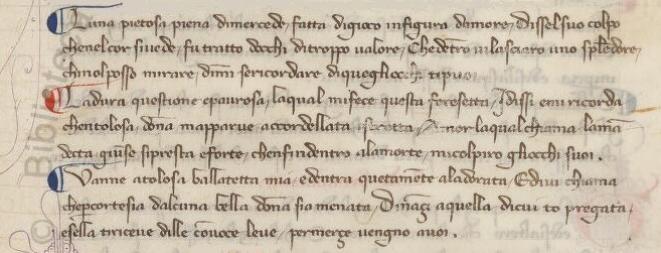 Luna pietosa piena dimercede, fatta digioco infigura damore, dissel suo colpo
chenel cor siuede, fu tratto docchi ditroppo ualore, Chedētro uilasciaro uno splēdore,
chinol posso mirare, dimmi sericordare, diquegliocchi tipuoi
Ladura questione epaurosa, laqual mifece questa foresetta, Idissi emi ricorda
chentolosa, dōna mapparue accordellata istretta, Amor laqual chiama lamā
detta giūse sipresta eforte, chenfindentro alamorte, micolpiro gliocchi suoi.
Vanne atolosa ballatetta mia, edentra quetamēte aladorata, Ediui chiama
cheportesia dalcuna bella dōna sia menata, Dināzi aquella dicui to pregata,
esella tiriceue dille cōuoce leue, permerze uengno auoi.